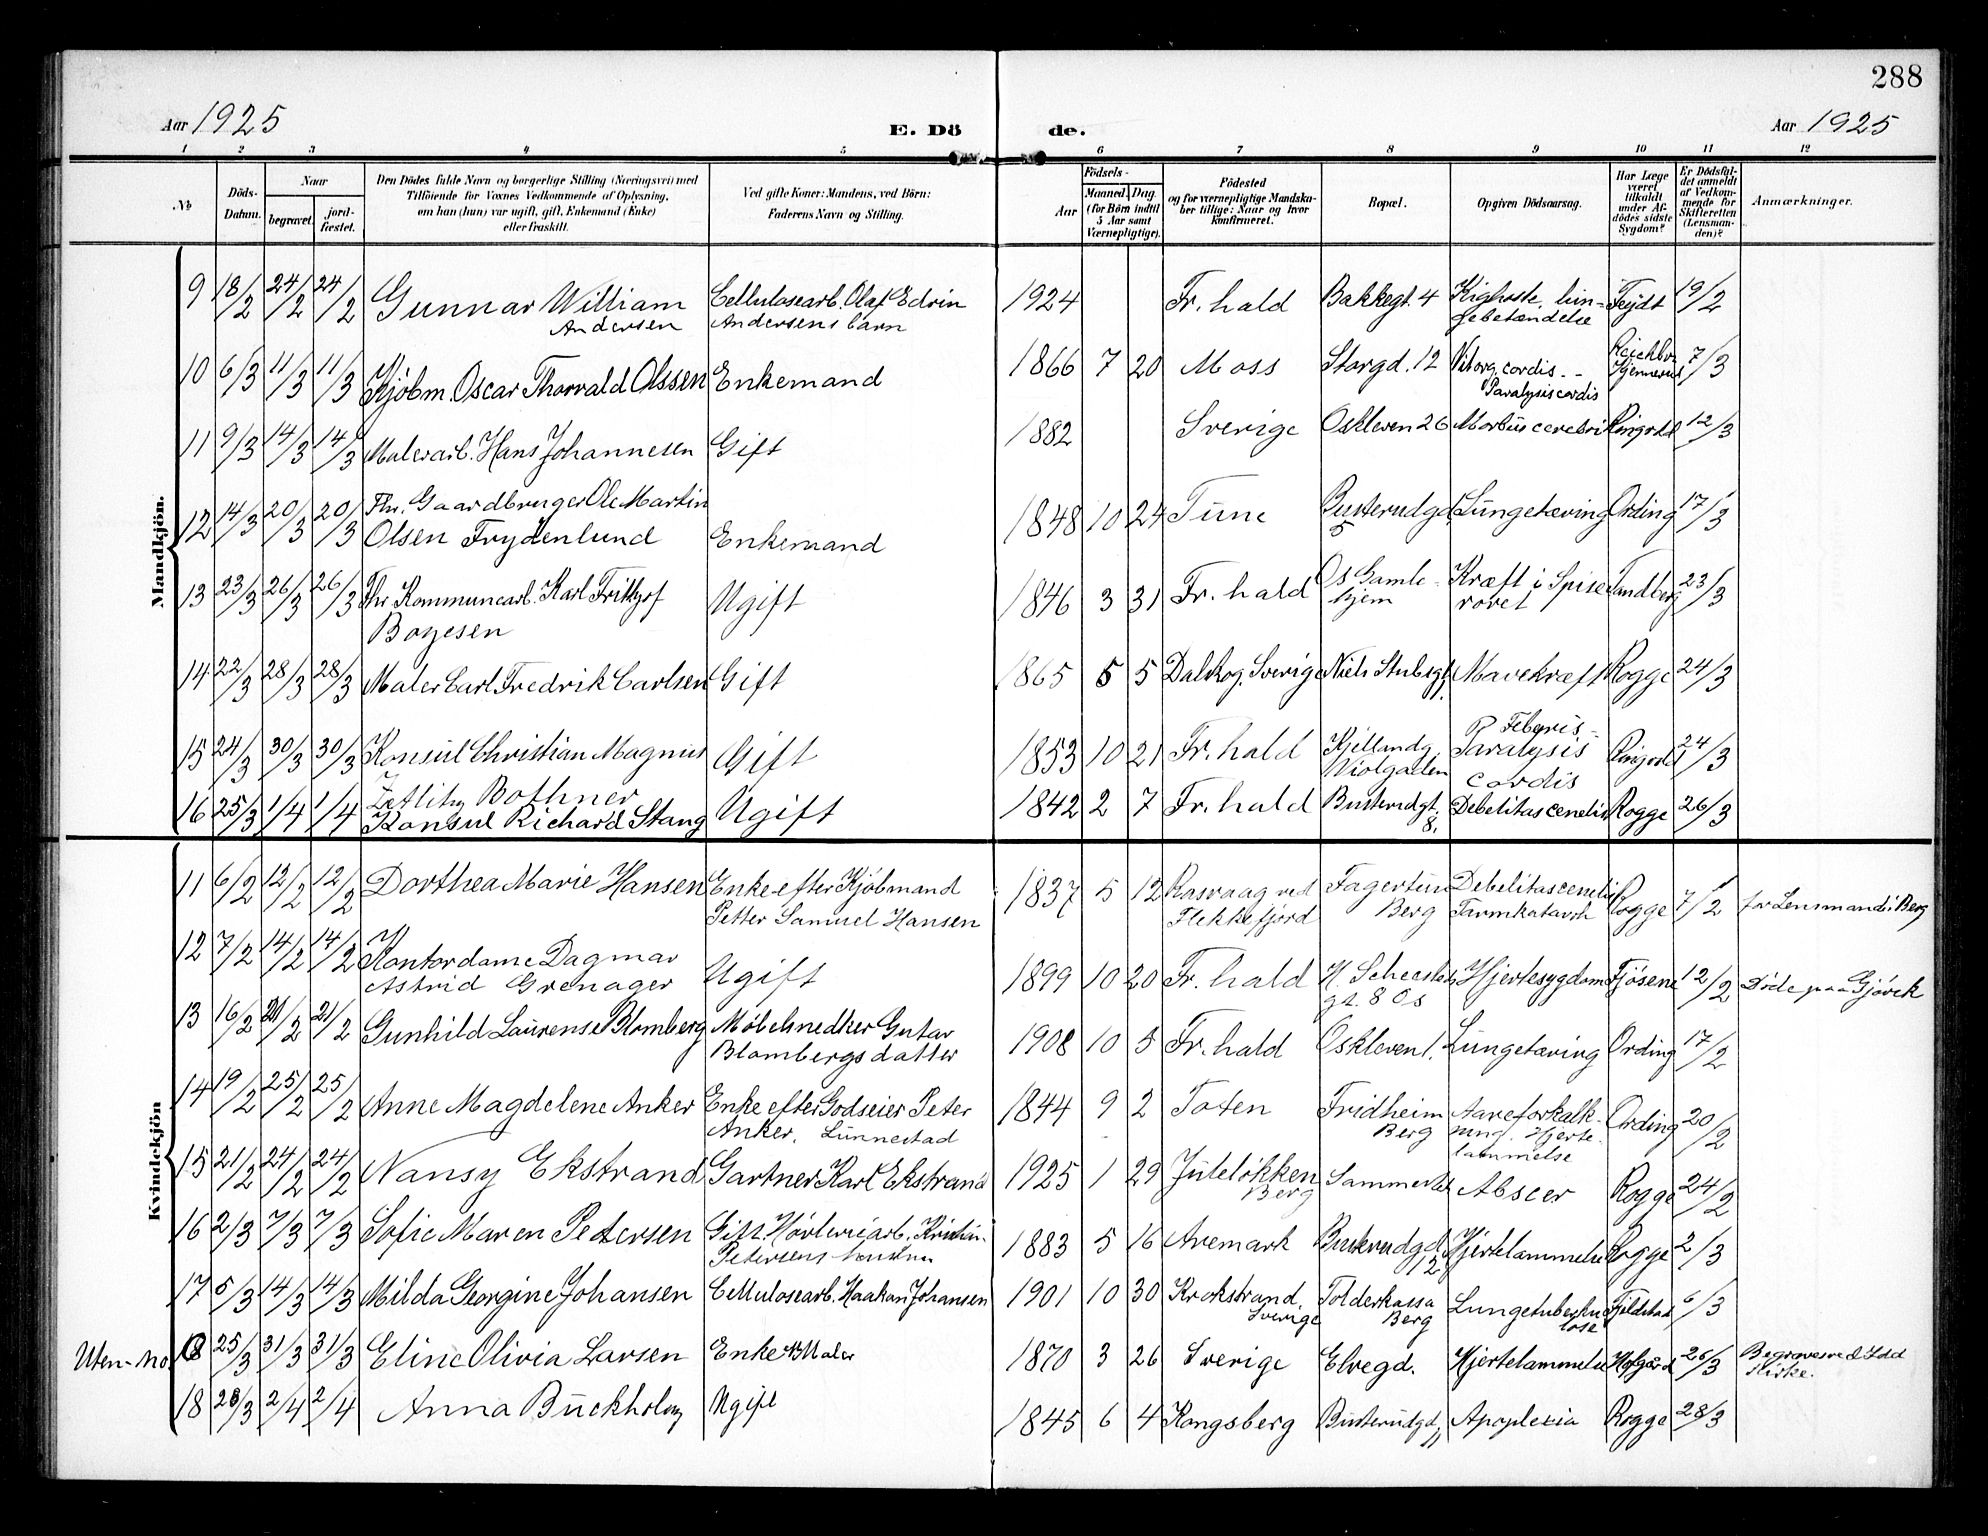 288
Aar 1925
E. Dö de.
Aar 1925
1 2 3 4 5 6 7 8 9 10 11 12
No Döds-Datum. Naar begravet. jordfæstet. Den Dödes fulde Navn og borgerlige Stilling (Næringsvei) med Tilföiende for Voxnes Vedkommende af Oplysning, om han (hun) var ugift, gift, Enkemand (Enke) eller fraskilt. Ved gifte Koner: Mandens, ved Börn: Faderens Navn og Stilling. Födsels- Aar Maaned. Dag. (for Börn indtil 5 Aar samt Værnepligtige). Födested og for værnepligtige Mandskaber tillige: Naar og hvor konfirmeret. Bopæl. Opgiven Dödsaarsag. Har Læge været tilkaldt under Afdödes sidste Sygdom? Er Dödsfaldet anmeldt af Vedkommende for Skifteretten (Lensmanden)? Anmærkninger.
Mandkjön.
9 18/2 24/2 24/2 Gunnar William Andersen Cellulosearb. Olaf Edvin Andersens barn 1924 Fr. hald Bakkegt. 4 Kighoste, lungebetændelse 19/2
10 6/3 11/3 11/3 Kjöbm. Oscar Thorvald Olssen Enkemand 1866 7 20 Moss Storgd. 12 cordis - Paralysis cordis 7/3
11 9/3 14/3 14/3 Malerarb. Hans Johannesen Gift 1882 Sverige Oskleven 26 Morbus cerebri Ringvold 12/3
12 14/3 20/3 20/3 Fhr. Gaardbruger Ole Martin Olsen Frydenlund Enkemand 1848 10 24 Tune Busterudgd. 5 Lungetæring Ording 17/3
13 23/3 26/3 26/3 Fhr Kommunearb. Karl Frithjof Boyesen Ugift 1846 3 31 Fr. hald Os Gamlehjem Kræft i Spiserøret Tandberg 23/3
14 22/3 28/3 28/3 Maler Carl Fredrik Carlsen Gift 1865 5 5 Dalskog, Sverige Niels Stubsgt. Mavekræft Rogge 24/3
15 24/3 30/3 30/3 Konsul Christian Magnus Zetlitz Bothner Gift 1853 10 21 Fr. hald Violgaden Febris - Paralysis cordis Ringvold 24/3
16 25/3 1/4 1/4 Konsul Richard Stang Ugift 1842 2 7 Fr. hald Busterudgt. 8. Debelitas cenelis Rogge 26/3
Kvindekjön
11 6/2 12/2 12/2 Dorthea Marie Hansen Enke efter Kjöbmand Petter Samuel Hansen 1837 5 12 Rasvaag ved Flekkefjord Fagertun Berg Debelitas cenelis Tarmkatarrh Rogge 7/2 for Lensmand i Berg
12 7/2 14/2 14/2 Kontordame Dagmar Astrid Grenager Ugift 1899 10 20 Fr. hald gt. 8 Os Hjertesygdom Fjösene 12/2 Döde paa Gjövik
13 16/2 21/2 21/2 Gunhild Laurense Blomberg Möbelsnedker Gustav Blombergs datter 1908 10 5 Fr. hald Oskleven 1. Lungetæring Ording 17/2
14 19/2 25/2 25/2 Anne Magdelene Anker Enke efter Godseier Peter Anker, Lunnestad 1844 9 2 Toten Fridheim Berg Aareforkalkning. Hjertelammelse Ording 20/2
15 21/2 24/2 24/2 Nansy Ekstrand Gartner Karl Ekstrand 1925 1 29 Juteløkken Berg Sammested Abscer Rogge 24/2
16 2/3 7/3 7/3 Sofie Maren Petersen Gift. Hövleriarb. Kristian Petersens hustru 1883 5 16 Aremark Busterudgd 12 Hjertelammelse Rogge 2/3
17 5/3 14/3 14/3 Milda Georgine Johansen Cellulosearb. Haakon Johansen 1901 10 30 Krokstrand, Sverige Tolderkassa Berg Lungetuberkulose Fjeldstad 6/3
Uten no. 25/3 31/3 31/3 Eline Olivia Larsen Enke Maler 1870 3 26 Sverige Elvegd. Hjertelammelse Hofgård 26/3 Begraves ved Idd Kirke.
18 28/3 2/4 2/4 Anna Buckholm Ugift 1845 6 4 Kongsberg Busterudgd. 11 Apoplexia Rogge 28/3